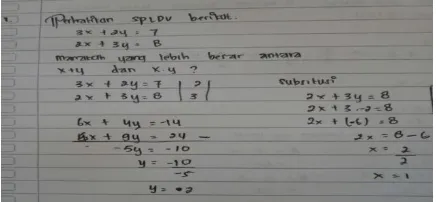 1. Perhatikan SPLDV berikut.
3x + 2y = 7
2x + 3y = 8
manakah yang lebih besar antara
x+y dan x-y ?
3x + 2y = 7 | 2 |
2x + 3y = 8 | 3 |
6x + 4y = -14
6x + 9y = 24 -
-5y = -10
y = -10
-5
y = 2
Subsitusi
2x + 3y = 8
2x + 3 -2 = 8
2x + (-6) = 8
2x = 8 - 6
x = 2
2
x = 1